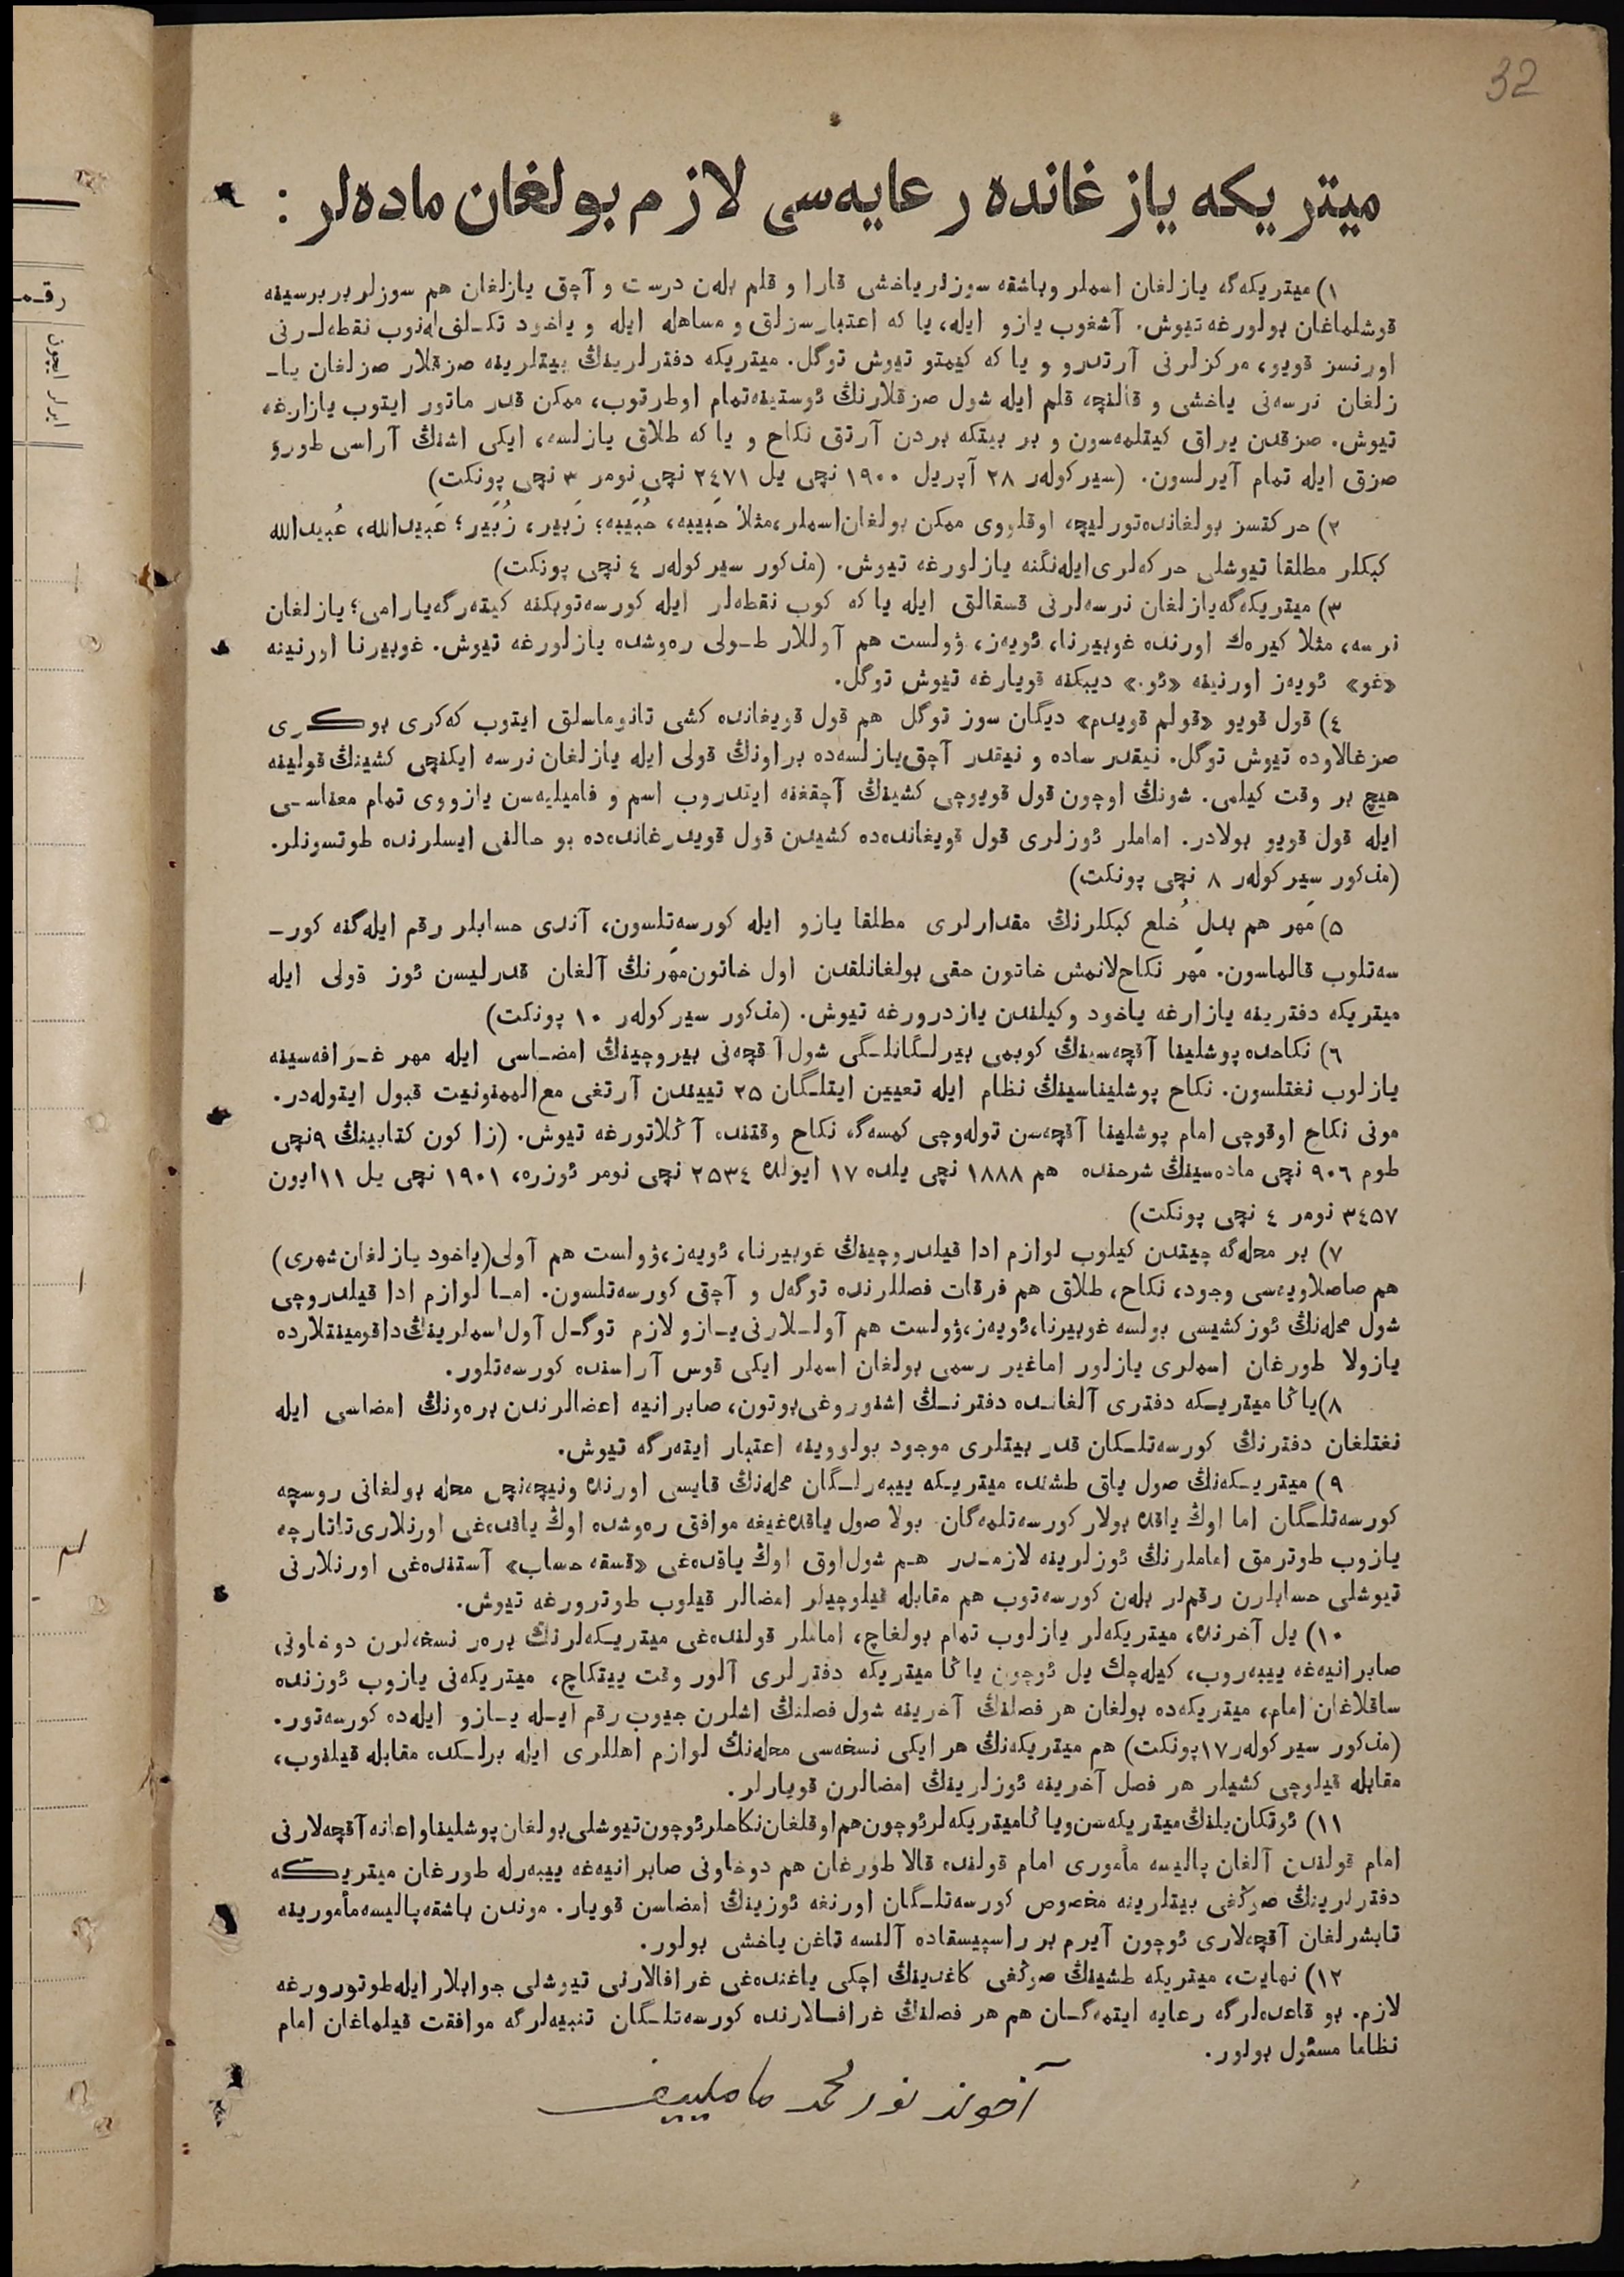 32
میتریکه یازغانده رعایه‌سی لازم بولغان ماده‌لر :
١) میتریکه‌گه یازلغان اسملر وباشقه سوزلر یاخشی قارا و قلم بله‌ن درست و آچق یازلغان هم سوزلر بربرسینه
قوشلماغان بولورغه تیوش. آشغوب یازو ایله، یا که اعتبارسزلق و مساهله ایله و یاخود تکـلف له‌نوب نقطه‌لـرنی
اورنسز قویو، مرکزلرنی آرتدرو و یا که کیمتو تیوش توگل. میتریکه دفترلرینڭ بیتلرینه صزقلار صزلغان یاـ
زلغان نرسه‌نی یاخشی و قالنچه قلم ایله شول صزقلارنڭ ئوستینه تمام اوطرتوب، ممکن قدر ماتور ایتوب یازارغه
تیوش. صزقدن یراق کیتلمه‌سون و بر بیتکه بردن آرتق نکاح و یا که طلاق یازلسه، ایکی اشنڭ آراسی طورۇ
صزق ایله تمام آیرلسون. (سیرکوله‌ر ٢٨ آپریل ١٩٠٠ نچی یل ٢٤٧١ نچی نومر ٣ نچی پونکت)
٢) حرکتسز بولغانده تورلیچه اوقلووی ممکن بولغان اسملر، مثلا حَبیبه، حُبَیبه؛ زَبیر، زُبَیر؛ عَبیدالله، عُبیدالله
کبکلر مطلقا تیوشلی حرکه‌لری ایله‌نگنه یازلورغه تیوش. (مذکور سیرکوله‌ر ٤ نچی پونکت)
٣) میتریکه‌گه یازلغان نرسه‌لرنی قسقالق ایله یا که کوب نقطه‌لر ایله کورسه‌توبکنه کیته‌رگه یارامی؛ یازلغان
نرسه، مثلا کیره‌ك اورنده غوبیرنا، ئویه‌ز، ۋولست هم آوللار طـولی ره‌وشده یازلورغه تیوش. غوبیرنا اورنینه
«غو» ئویه‌ز اورنینه «ئو.» دیبکنه قویارغه تیوش توگل.
٤) قول قویو «قولم قویدم» دیگان سوز توگل هم قول قویغانده کشی تانوماسلق ایتوب که‌کری بوکـری
صزغالاوده تیوش توگل. نیقدر ساده و نیقدر آچق یازلسه‌ده براونڭ قولی ایله یازلغان نرسه ایکنچی کشینڭ قولینه
هیچ بر وقت کیلمی. شونڭ اوچون قول قویوچی کشینڭ آچقغنه ایتدروب اسم و فامیلیه‌سن یازووی تمام معناسـی
ایله قول قویو بولادر. اماملر ئوزلری قول قویغانده‌ده کشیدن قول قویدرغانده‌ده بو حالنی ایسلرنده طوتسونلر.
(مذکور سیرکوله‌ر ٨ نچی پونکت)
٥) مَهر هم بدلِ خُلع کبکلرنڭ مقدارلری مطلقا یازو ایله کورسه‌تلسون، آندی حسابلر رقم ایله‌گنه کورـ
سه‌تلوب قالماسون. مَهر نکاح‌لانمش خاتون حقی بولغانلقدن اول خاتون مَهرنڭ آلغان قدرلیسن ئوز قولی ایله
میتریکه دفترینه یازارغه یاخود وکیلندن یازدرورغه تیوش. (مذکور سیرکوله‌ر ١٠ پونکت)
٦) نکاحده پوشلینا آقچه‌سینڭ کوبمی بیرلـگانلـگی شول آقچه‌نی بیروچینڭ امضـاسی ایله مهر غـرافه‌سینه
یازلوب نغتلسون. نکاح پوشلیناسینڭ نظام ایله تعیین ایتلـگان ٢٥ تییندن آرتغی مع الممنونیت قبول ایتوله‌در.
مونی نکاح اوقوچی امام پوشلینا آقچه‌سن توله‌وچی کمسه‌گه نکاح وقتنده آڭلاتورغه تیوش. (زاکون کتابینڭ ٩نچی
طوم ٩٠٦ نچی ماده‌سینڭ شرحنده هم ١٨٨٨ نچی یلده ١٧ ایولده ٢٥٣٤ نچی نومر ئوزره، ١٩٠١ نچی یل ١١ایون
٣٤٥٧ نومر ٤ نچی پونکت)
٧) بر محله‌گه چیتدن کیلوب لوازم ادا قیلدروچینڭ غوبیرنا، ئویه‌ز، ۋولست هم آولی (یاخود یازلغان شهری)
هم صاصلاویه‌سی وجود، نکاح، طلاق هم فرقات فصللرنده توگه‌ل و آچق کورسه‌تلسون. امـا لوازم ادا قیلدروچی
شول محله‌نڭ ئوز کشیسی بولسه غوبیرنا، ئویه‌ز، ۋولست هم آولـلارنی یـازو لازم توگـل آول اسملرینڭ داقومینتلارده
یازولا طورغان اسملری یازلور اما غیر رسمی بولغان اسملر ایکی قوس آراسنده کورسه‌تلور.
٨) یاڭا میتریـکه دفتری آلغانـده دفترنـڭ اشنوروغی بوتون، صابرانیه اعضالرندن بره‌ونڭ امضاسی ایله
نغتلغان دفترنڭ کورسه‌تلـکان قدر بیتلری موجود بولووینه اعتبار ایته‌رگه تیوش.
٩) میتریـکه‌نڭ صول یاق طشنده میتریـکه ییبه‌رلـگان محله‌نڭ قایسی اورنده ونیچه‌نچی محله بولغانی روسچه
کورسه‌تلـگان اما اوڭ یاقده بولار کورسه‌تلمه‌گان. بولا صول یاقده‌غیغه موافق ره‌وشده اوڭ یاقده‌غی اورنلاری تاتارچه
یازوب طوترمق اماملرنڭ ئوزلرینه لازمـدر هـم شول اوق اوڭ یاقده‌غی «قسقه حساب» آستنده‌غی اورنلارنی
تیوشلی حسابلرن رقم‌لر بله‌ن کورسه‌توب هم مقابله قیلوچیلر امضالر قیلوب طوترورغه تیوش.
١٠) یل آخرنده، میتریکه‌لر یازلوب تمام بولغاچ، اماملر قولنده‌غی میتریـکه‌لرنڭ بره‌ر نسخه‌لرن دوخاونی
صابرانیه‌غه ییبه‌روب، کیله‌چك یل ئوچون یاڭا میتریکه دفترلری آلور وقت ییتکاچ، میتریکه‌نی یازوب ئوزنده
ساقلاغان امام، میتریکه‌ده بولغان هر فصلنڭ آخرینه شول فصلنڭ اشلرن جیوب رقم ایـله یـازو ایله‌ده کورسه‌تور.
(مذکور سیرکوله‌ر ١٧پونکت) هم میتریکه‌نڭ هر ایکی نسخه‌سی محله‌نڭ لوازم اهللری ایله برلـکده مقابله قیلنوب،
مقابله قیلوچی کشیلر هر فصل آخرینه ئوزلرینڭ امضالرن قویارلر.
١١) ئوتکان یلنڭ میتریکه‌سن ویاڭا میتریکه‌لر ئوچون هم اوقلغان نکاحلر ئوچون تیوشلی بولغان پوشلینا واعانه آقچه‌لارنی
امام قولندن آلغان پالیسه مأموری امام قولنده قالا طورغان هم دوخاونی صابرانیه‌غه ییبه‌رله طورغان میتریـکه
دفترلرینڭ صوڭغی بیتلرینه مخصوص کورسه‌تلـگان اورنغه ئوزینڭ امضاسن قویار. موندن باشقه پالیسه مأمورینه
تابشرلغان آقچه‌لاری ئوچون آیرم بر راسپیسقاده آلنسه تاغن یاخشی بولور.
١٢) نهایت، میتریکه طشینڭ صوڭغی کاغدینڭ اچکی یاغنده‌غی غرافالارنی تیوشلی جوابلار ایله طوتورورغه
لازم. بو قاعده‌لرگه رعایه ایتمه‌گـان هم هر فصلنڭ غرافـالارنده کورسه‌تلـگان تنبیه‌لرگه موافقت قیلماغان امام
نظاما مسئول بولور.
آخوند نور محمد ماملییف